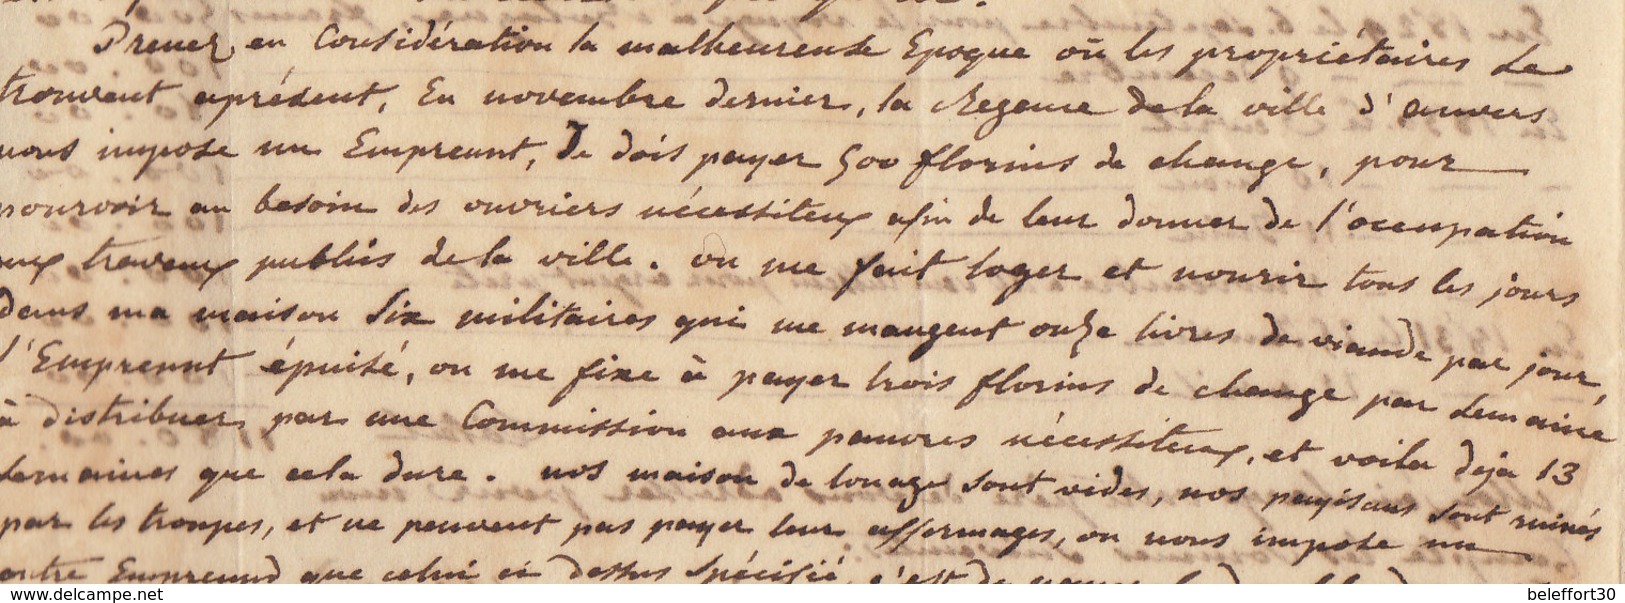 Prenez en Considération la malheureuse Epoque où les propriétaires se
trouvent aprésent, En novembre dernier, la Regence de la ville d'anvers
nous impose un Emprennt, Je dois payer 500 florins de change, pour
pourvoir au besoin des ouvriers nécessiteux afin de leur donner de l'occupation
aux travaux publiis de la ville. on me fait loger et nourir tous les jours
dans ma maison Six militaires qui me mangent onze livres de viande par jour,
l'Emprennt épuisé, on me fixe à payer trois florins de change par semaine
à distribuer par une Commission aux pauvres nécessiteux, et voila deja 13
semaines que cela dure. nos maison de louage sont vides, nos payisans sont ruinés
par les troupes, et ne peuvent pas payer leur affermages, on nous impose un
autre Emprennd que celui ci dessus Spécifié, c'est de
www.delcampe.net
beleffort30